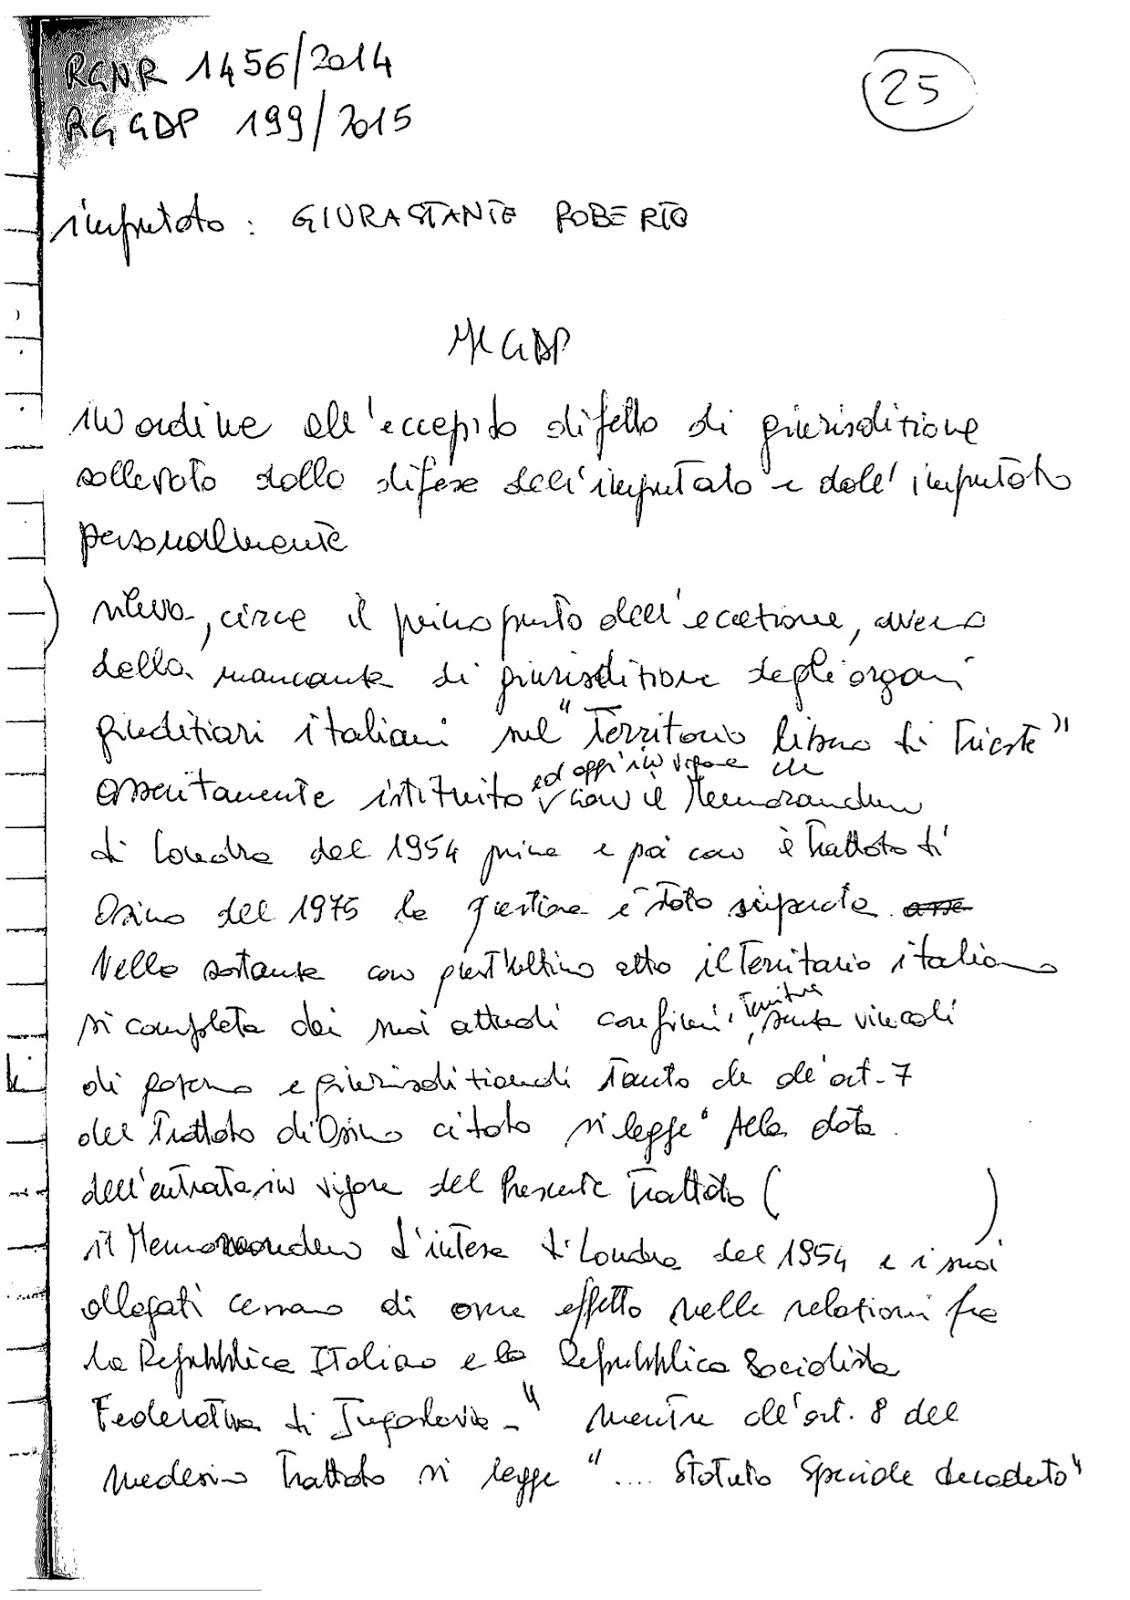 RGNR 1456/2014
RG GDP 199/2015
25
imputato : GIURASTANTE ROBERTO
Il GDP
in ordine all'eccepito difetto di giurisdizione
sollevato dalla difesa dell'imputato e dall'imputato
personalmente
rileva, circa il primo punto dell'eccezione, ovvero
della mancanza di giurisdizione degli organi
giudiziari italiani sul "Territorio libero di Trieste"
ed oggi in vigore che
asseritamente istituito con il Memorandum
di Londra del 1954 prima e poi con il Trattato di
Osimo del 1975 la questione è stata superata
Nella sostanza con quest'ultimo atto il Territorio italiano
si completa dei suoi attuali confini, senza vincoli
di governo e giurisdizionali tanto che all'art. 7
del Trattato di Osimo citato si legge "Alla data
dell'entrata in vigore del Presente Trattato ( )
il Memorandum d'intesa di Londra del 1954 e i suoi
allegati cessano di avere effetto nelle relazioni fra
la Repubblica Italiana e la Repubblica Socialista
Federativa di Jugoslavia - " mentre all'art. 8 del
medesimo Trattato si legge ".... Statuto Speciale decaduto"